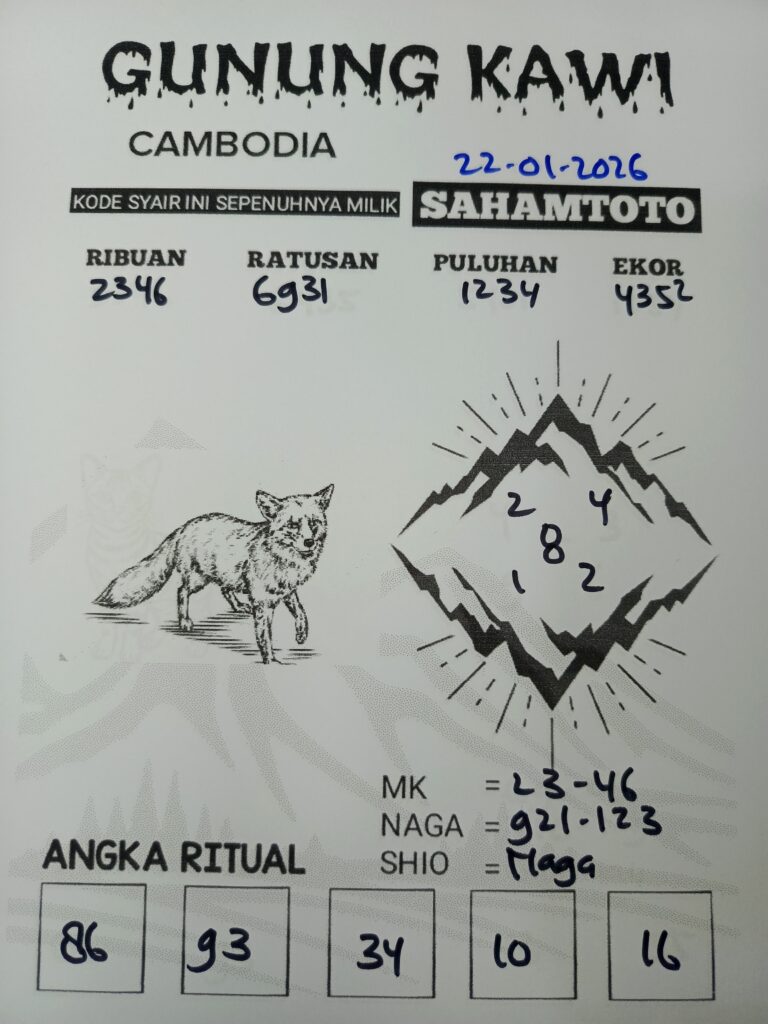 GUNUNG KAWI
CAMBODIA
22-01-2026
KODE SYAIR INI SEPENUHNYA MILIK SAHAMTOTO
RIBUAN RATUSAN PULUHAN EKOR
2346 6931 1234 4352
2 4
8
1 2
MK = 23-46
NAGA = 921-123
SHIO = Naga
ANGKA RITUAL
86 93 34 10 16